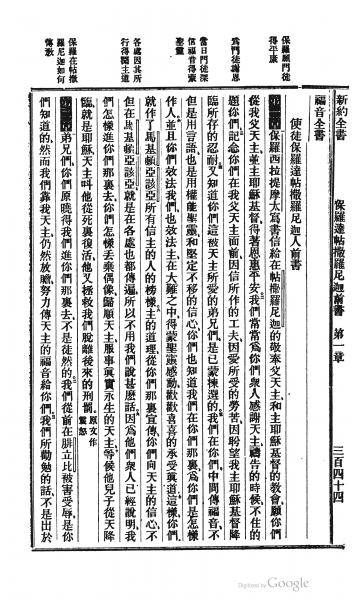 新約全書
福音全書
保羅達帖撒羅尼迦前書 第一章 三百四十四
保羅願門徒
得平康
爲門徒謝恩
當日門徒深
信福音得蒙
聖靈
各處因其所
行得聞主道
保羅在帖撒
羅尼迦如何
傳教
使徒保羅達帖撒羅尼迦人前書
第一章 保羅西拉提摩太寫書信給在帖撒羅尼迦的敬奉父天主和主耶穌基督的教會願你們
從我父天主並主耶穌基督得著恩惠平安我們常常爲你們衆人感謝天主禱告的時候不住的
題你們記念你們在我父天主面前因信所作的工夫因愛所受的勞苦因盼望我主耶穌基督降
臨所存的忍耐又知道你們這被天主所愛的弟兄們是已蒙揀選的我們在你們中間傳福音不
但是用言語也是用權能聖靈和堅定不移的信心你們也知道我們在你們那裏爲你們是怎樣
作人並且你們效法我們也效法主在大難之中得蒙聖靈感動歡歡喜喜的承受眞道這樣你們
就作了馬基頓亞該亞所有信主的人的榜樣主的道理從你們那裏宣傳你們向天主的信心不
但在馬基頓亞該亞就是在各處也都傳遍所以不用我們說甚麽話因爲他們衆人已經說明我
們怎樣進你們那裏去你們怎樣丟棄偶像歸順天主服事眞實永生的天主等候他兒子從天降
臨就是耶穌天主叫他從死裏復活他又拯救我們脫離後來的刑罰 原文作震怒
第二章 弟兄們你們原曉得我們進你們那裏去不是徒然的我們從前在腓立比被害受辱是你
們知道的然而我們靠我天主仍然放膽努力傳天主的福音給你們我們所勸勉的話不是出於
Digitized by Google